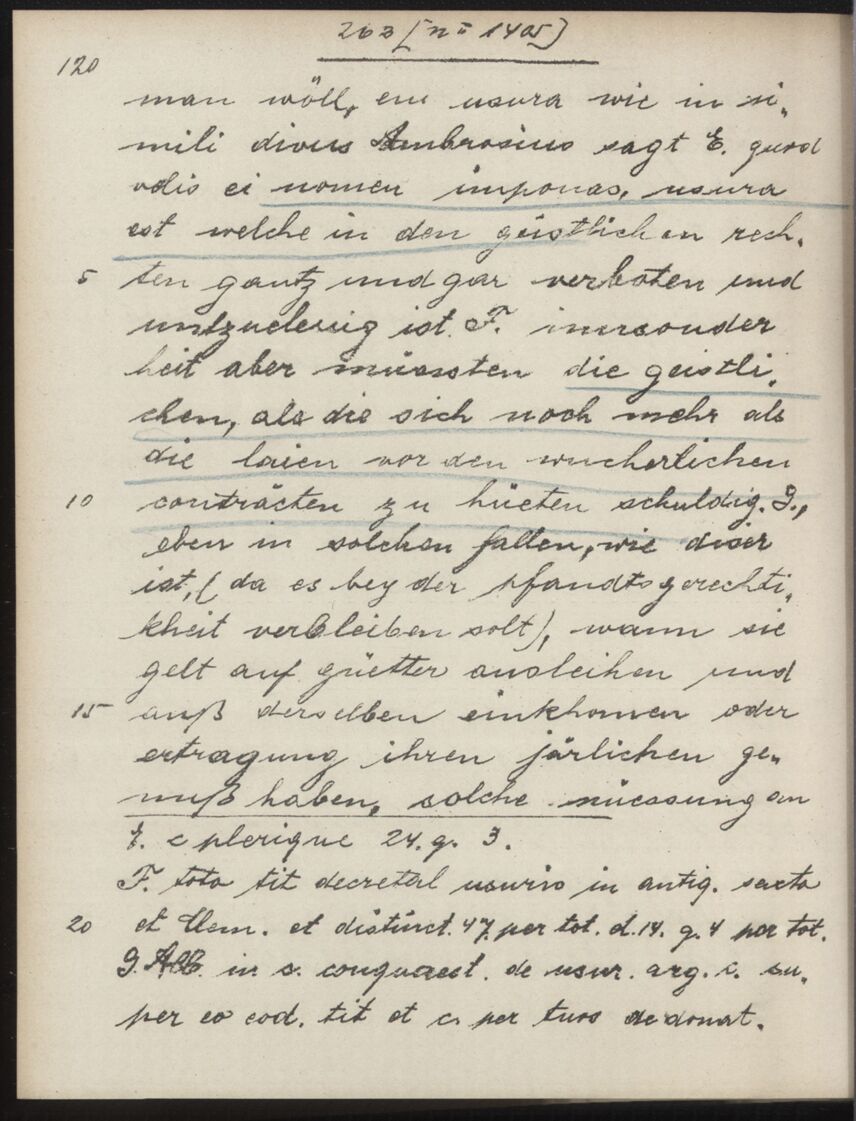 263 [nº 1405]
120
man wöll, ein usura wie in si„
mili divus Ambrosius sagt E. quod
vdis ei nomen imponas, usura
est welche in den geistlichen rech„
5 ten gantz und gar verboten und
untzuelessig ist. F. innsonder
heit aber müessten die geistli„
chen, als die sich noch mehr als
die laien vor den wucherlichen
10 conträcten zu hüeten schuldig. G.,
eben in solchen fallen, wie diser
ist, (da es bey der pfandtsgerechti„
kheit verbleiben solt), wann sie
gelt auf güetter ausleihen und
15 auß derselben einkhomen oder
ertragung ihren järlichen ge„
nuß haben, solche nüessung an
E. c plerique 24. q. 3.
F. toto tit decretal usuris in antiq. sexto
20 et Clem. et distinct. 47. per tot. d. 14. q. 4 per tot.
G. Abb. in. c. conquaest. de usur. arg. c. su„
per eo eod. tit et c. per tuas de donat.